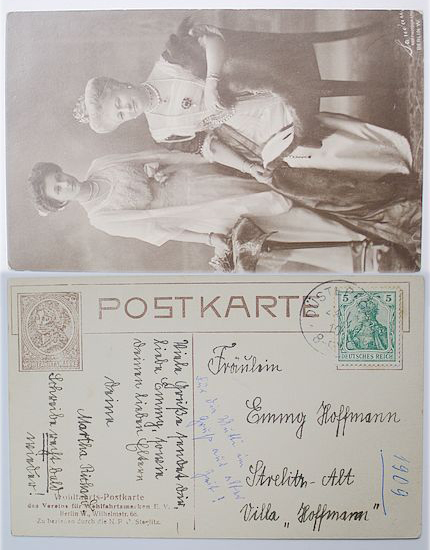 BERLIN W.
POSTKARTE
5 5
DEUTSCHES REICH
Fräulein
Emmy Hoffmann
Strelitz-Alt
Villa „Hoffmann"
1909
Viele Grüße sendet Dir,
liebe Emmy, sowie
deinen lieben Eltern
deine
Martha
Schreibe recht bald
wieder!
für die
Gruß aus alter
Zeit!
Wohlfahrts-Postkarte
des Vereins für Wohlfahrtsmarken E. V.
Berlin W., Wilhelmstr. 66.
Zu beziehen durch die N. P. G. Steglitz.